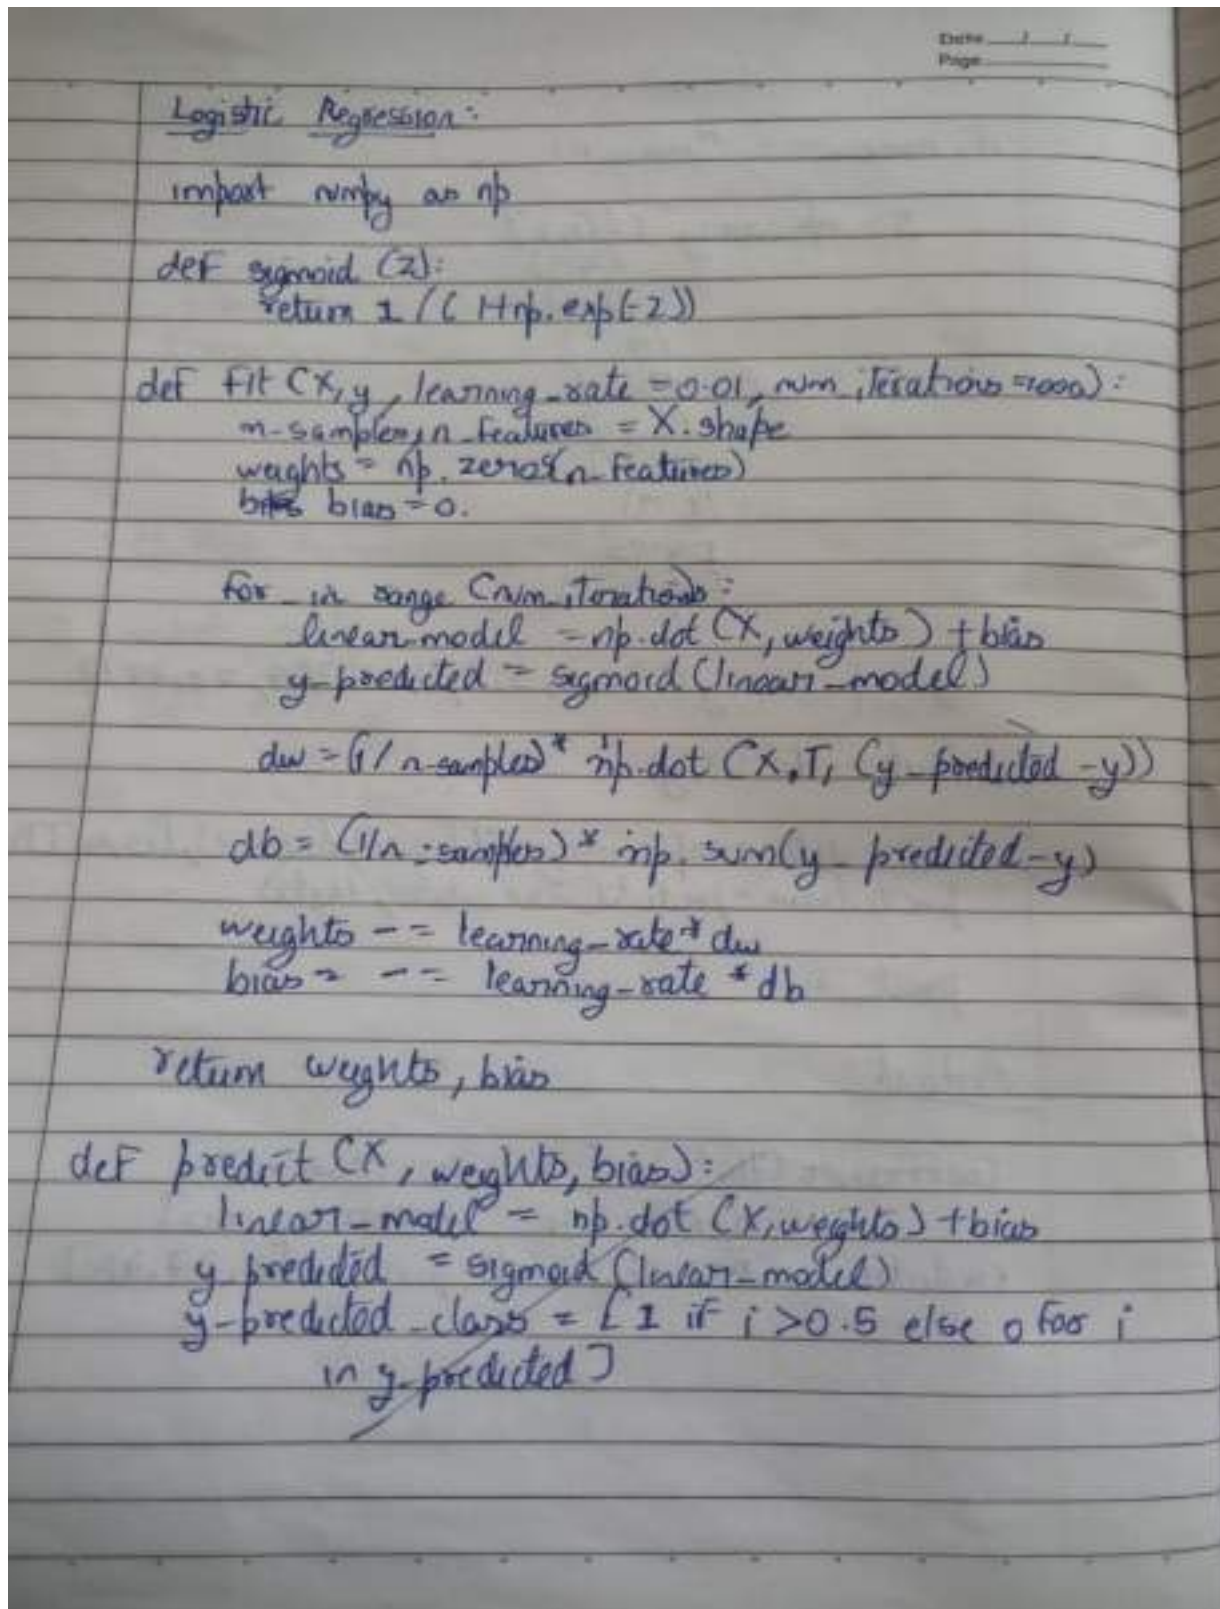 Date ___/___/___
Page
Logistic Regression:
import numpy as np
def sigmoid (z):
return 1 / ( 1+np.exp(-z))
def fit (X, y, learning_rate = 0.01, num_iterations = 1000):
m-samples, n_features = X.shape
weights = np.zeros(n_features)
bias = 0.
for _ in range (num_iterations):
linear-model = np.dot (X, weights) + bias
y-predicted = sigmoid (linear_model)
dw = (1/n-samples) * np.dot (X.T, (y_predicted - y))
db = (1/n-samples) * np.sum(y_predicted - y)
weights -= learning_rate * dw
bias = -= learning_rate * db
return weights, bias
def predict (X, weights, bias):
linear_model = np.dot (X, weights) + bias
y_predicted = sigmoid (linear_model)
y-predicted_class = [1 if i > 0.5 else 0 for i
in y_predicted]